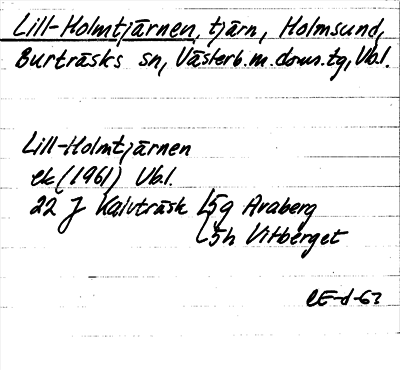 Lill-Holmtjärnen, tjärn, Holmsund,
Burträsks sn, Västerb.m.doms.tg, Vbl.
Lill-Holmtjärnen
ek (1961) Vbl.
22 J Kalvträsk 5g Avaberg
5h Vitberget